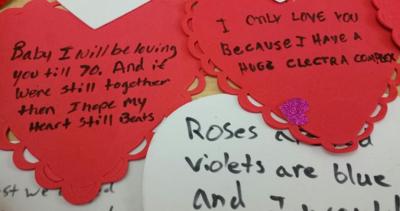 Baby I will be loving
you till 70. And if
were still together
then I hope my
Heart Still Beats
I ONLY LOVE YOU
BECAUSE I HAVE A
HUGE ELECTRA COMPLEX
Roses
violets are blue
and I